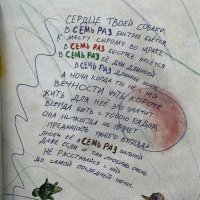 СЕРДЦЕ ТВОЕЙ СОБАКИ
В СЕМЬ РАЗ БЫСТРЕЕ БЬЁТСЯ
К МЕСТУ СЫРОМУ ВО МРАКЕ
В СЕМЬ РАЗ БЫСТРЕЕ НЕСЁТСЯ
В СЕМЬ РАЗ ЕЁ ДНИ ДЛИННЕЙ
В СЕМЬ РАЗ ДЛИННЕЙ
А НОЧИ КОГДА ТЫ НЕ С НЕЙ
ВЕЧНОСТИ ЧУТЬ КОРОЧЕ
ЖИТЬ ДЛЯ НЕЁ ЭТО ЗНАЧИТ
ВСЕГДА БЫТЬ С ТОБОЮ РЯДОМ
ОНА НИКОГДА НЕ ПРЯЧЕТ
ПРЕДАННОГО УМНОГО ВЗГЛЯДА
ЛЮБИ ЕЁ В СЕМЬ РАЗ СИЛЬНЕЙ
ДАЖЕ ЕСЛИ ЛЮБИШЬ ОЧЕНЬ
НЕ РАССТАВАЙСЯ С НЕЙ
ДО САМОЙ ПОСЛЕДНЕЙ НОЧИ